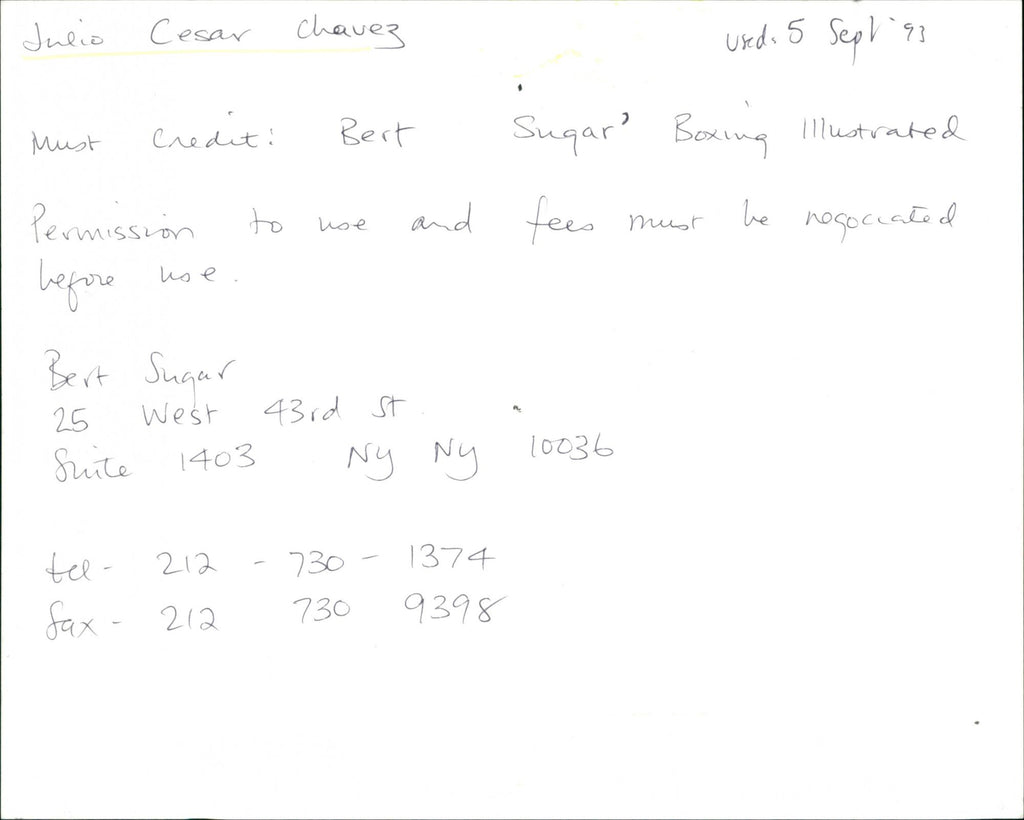 Julio Cesar Chavez used. 5 Sept '93
Must Credit: Bert Sugar' Boxing Illustrated
Permission to use and fees must be negociated
before use.
Bert Sugar
25 West 43rd St.
Suite 1403 NY NY 10036
tel - 212 - 730 - 1374
fax - 212 730 9398